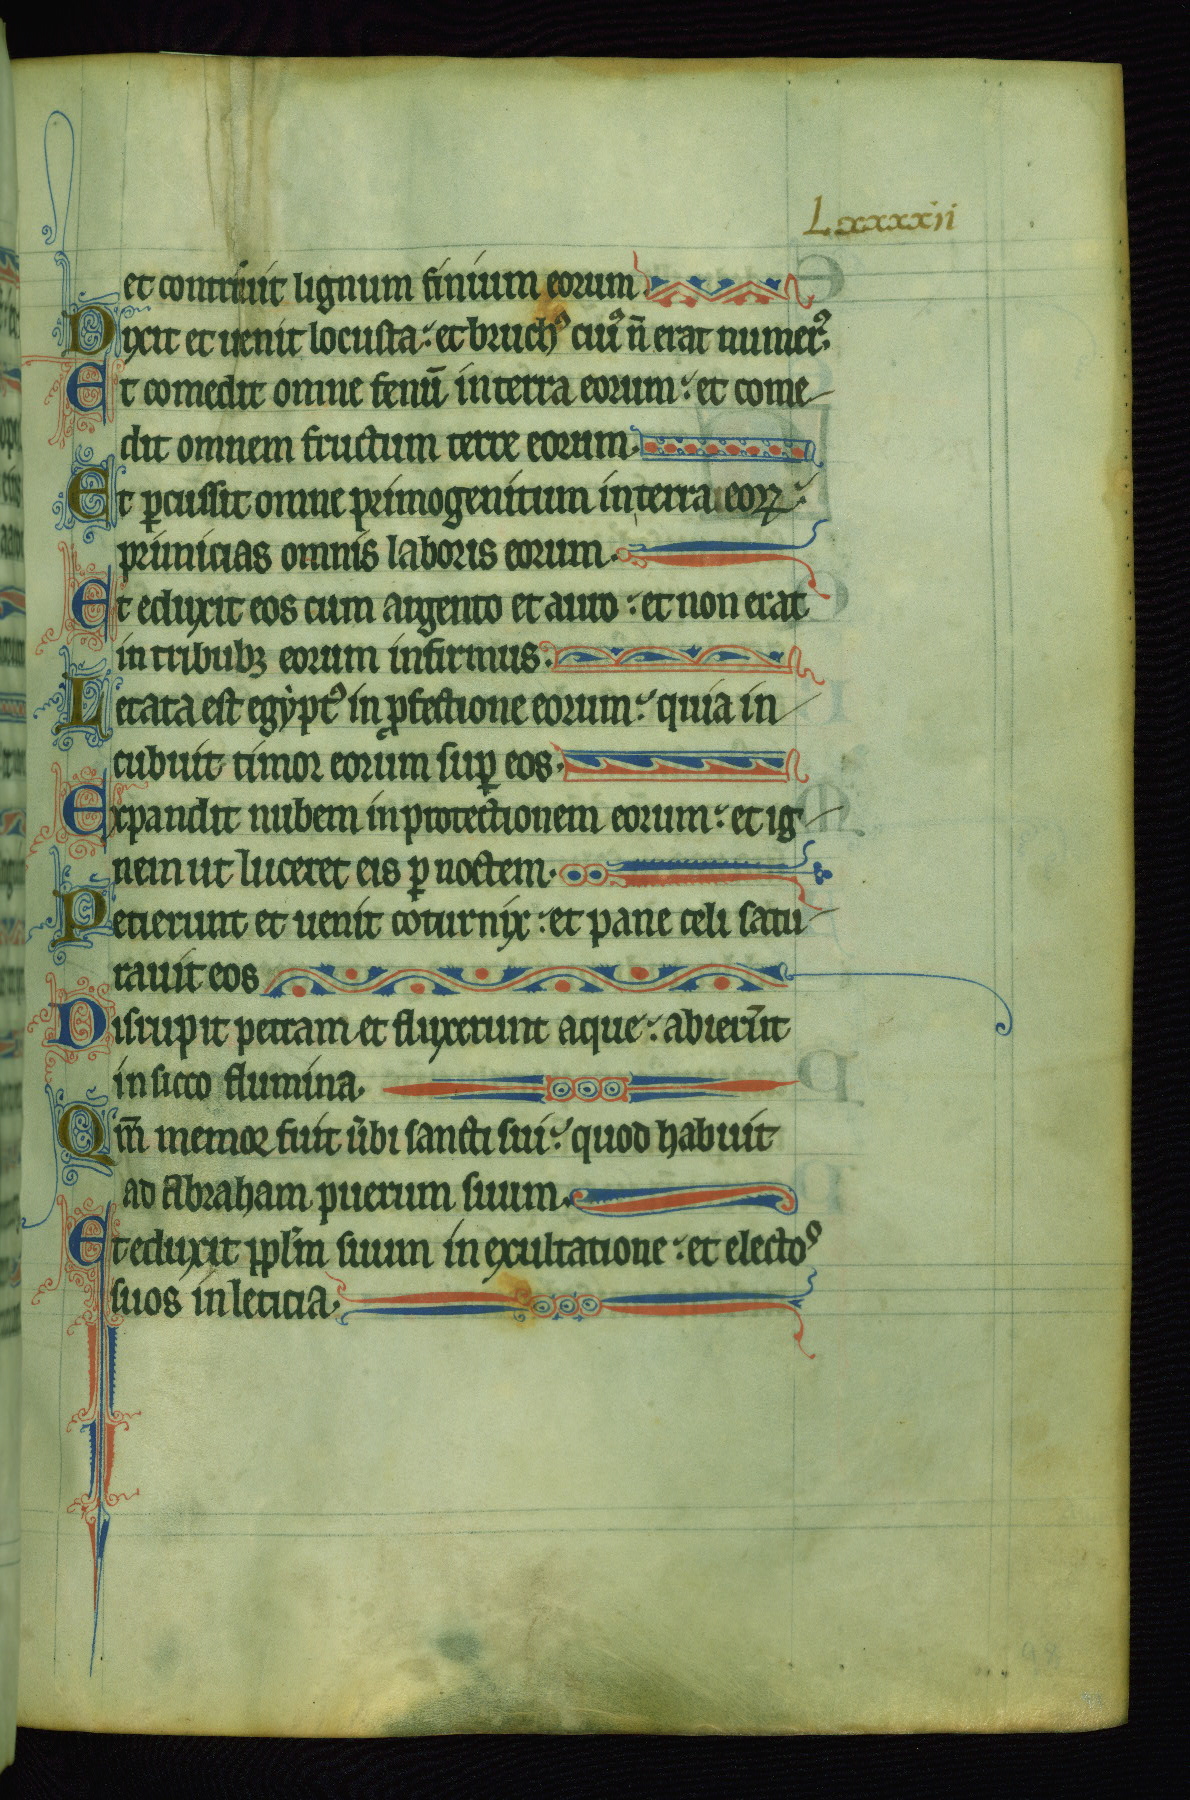 Lxxxxii
et contriuit lignum finium eorum.
Dixit et uenit locusta: et bruchꝰ cuiꝰ ñ erat numerꝰ.
Et comedit omne fenū in terra eorum: et come
dit omnem fructum terre eorum.
Et ꝑcussit omne primogenitum in terra eoꝝ:
primicias omnis laboris eorum.
Et eduxit eos cum argento et auro: et non erat
in tribubꝫ eorum infirmus.
Letata est egyptꝰ in ꝓfectione eorum: quia in
cubuit timor eorum suꝑ eos.
Expandit nubem in protectionem eorum: et ig
nem ut luceret eis ꝑ noctem.
Petierunt et uenit coturnix: et pane celi satu
rauit eos
Disrupit petram et fluxerunt aque: abierūt
in sicco flumina.
Qm̄ memor fuit ūbi sancti sui: quod habuit
ad Abraham puerum suum.
Et eduxit ppl̄m suum in exultatione: et electoꝰ
suos in leticia.
98